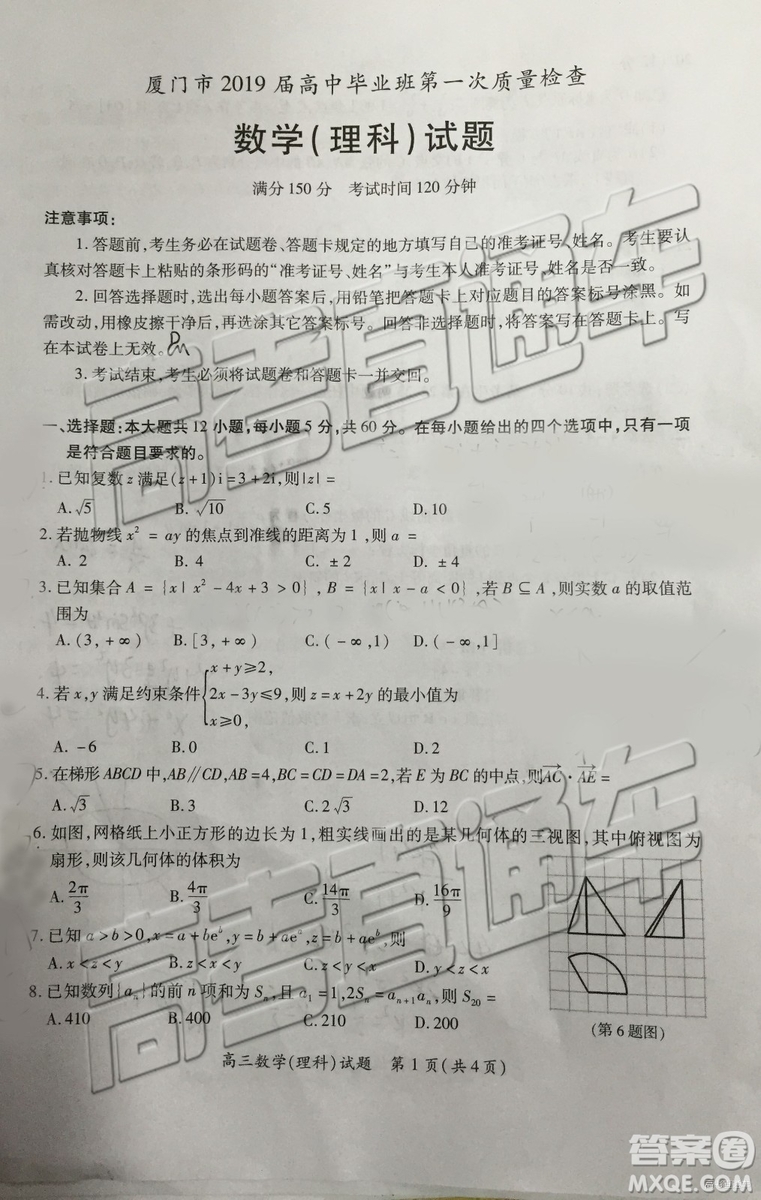 厦门市 2019 届高中毕业班第一次质量检查
数学(理科)试题
满分 150 分 考试时间 120 分钟
注意事项:
1. 答题前,考生务必在试题卷、答题卡规定的地方填写自己的准考证号、姓名。考生要认
真核对答题卡上粘贴的条形码的“准考证号、姓名”与考生本人准考证号、姓名是否一致。
2. 回答选择题时,选出每小题答案后,用铅笔把答题卡上对应题目的答案标号涂黑。如
需改动,用橡皮擦干净后,再选涂其它答案标号。回答非选择题时,将答案写在答题卡上。写
在本试卷上无效。
3. 考试结束,考生必须将试题卷和答题卡一并交回。
一、选择题:本大题共 12 小题,每小题 5 分,共 60 分。在每小题给出的四个选项中,只有一项
是符合题目要求的。
1. 已知复数 z 满足(z+1)i=3+2i,则|z|=
A. √5 B. √10 C. 5 D. 10
2. 若抛物线 x² = ay 的焦点到准线的距离为 1 ,则 a =
A. 2 B. 4 C. ±2 D. ±4
3. 已知集合 A = {x| x² -4x +3 >0} , B = {x| x - a <0} ,若 B ⊆ A ,则实数 a 的取值范
围为
A. (3, +∞) B. [3, +∞) C. (-∞,1) D. (-∞,1]
4. 若 x,y 满足约束条件{x+y≥2, 2x-3y≤9, x≥0, 则 z=x+2y 的最小值为
A. -6 B. 0 C. 1 D. 2
5. 在梯形 ABCD 中,AB∥CD,AB=4,BC=CD=DA=2,若 E 为 BC 的中点,则AC·AE=
A. √3 B. 3 C. 2√3 D. 12
6. 如图,网格纸上小正方形的边长为 1,粗实线画出的是某几何体的三视图,其中俯视图为
扇形,则该几何体的体积为
A. 2π/3 B. 4π/3 C. 14π/3 D. 16π/9
7. 已知 a>b>0,x=a+beᵃ,y=b+aeᵃ,z=b+aeᵇ,则
A. x<z<y B. z<x<y C. z<y<x D. y<z<x
8. 已知数列{aₙ}的前 n 项和为 Sₙ,且 a₁=1,2Sₙ=aₙ₊₁aₙ,则 S₂₀=
A. 410 B. 400 C. 210 D. 200
(第 6 题图)
高三数学(理科)试题 第 1 页(共 4 页)
高考直通车
高考直通车
答案圈
MXQE.COM